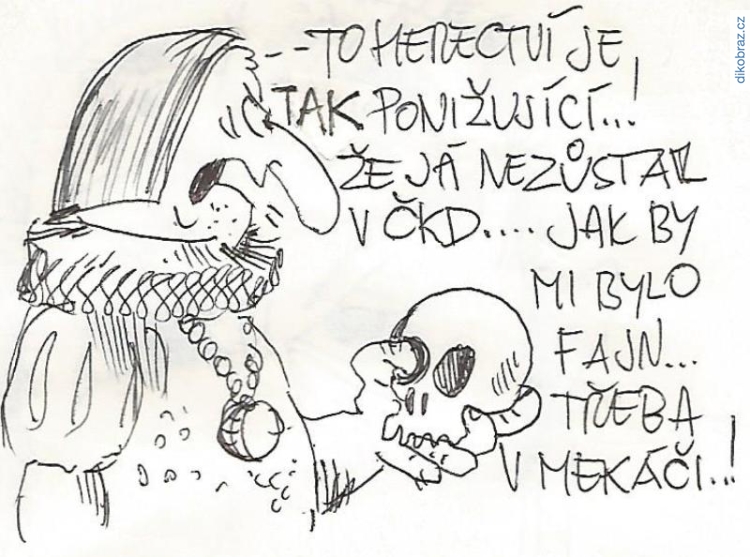 ---TO HERECTVÍ JE
TAK PONIŽUJÍCÍ...!
ŽE JÁ NEZŮSTAL
V ČKD.... JAK BY
MI BYLO
FAJN...
TŘEBA
V MEKÁČI..!
dikobraz.cz